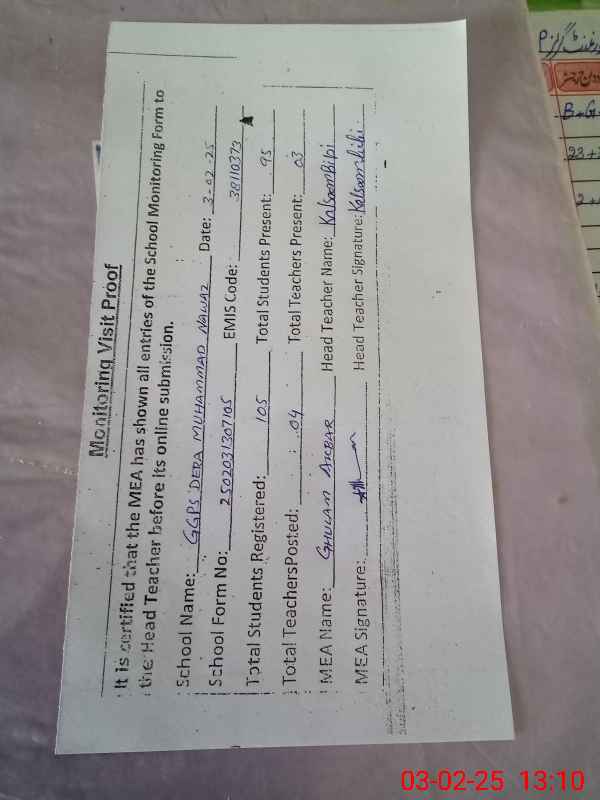 Monitoring Visit Proof
It is certified that the MEA has shown all entries of the School Monitoring Form to
the Head Teacher before its online submission.
School Name: GGPS DERA MUHAMMAD NAWAZ Date: 3-02-25
School Form No: 2502031307105 EMIS Code: 38110373
Total Students Registered: 105 Total Students Present: 95
Total TeachersPosted: 04 Total Teachers Present: 03
MEA Name: GHULAM AKBAR Head Teacher Name: KalsoomBibi
MEA Signature: Head Teacher Signature: Kalsoombibi
B+G
23+
2+
03-02-25 13:10